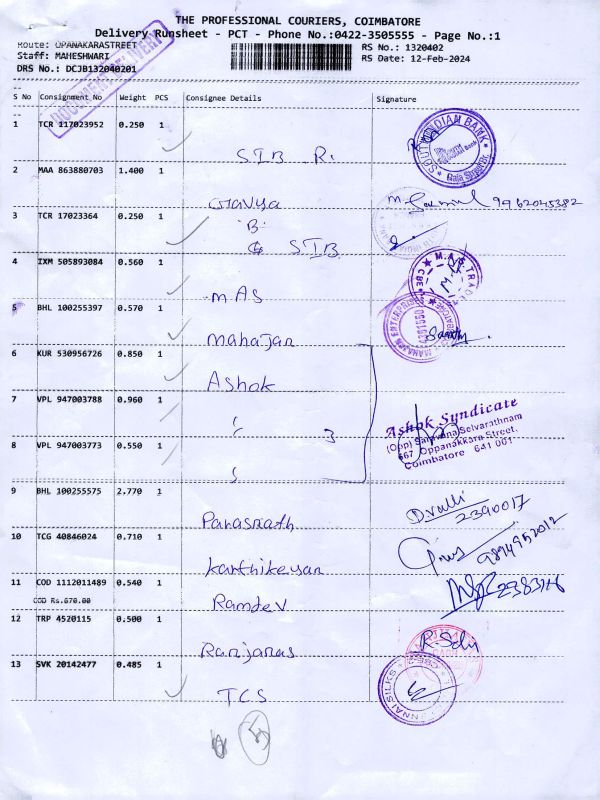 THE PROFESSIONAL COURIERS, COIMBATORE
Delivery Runsheet - PCT - Phone No.:0422-3505555 - Page No.:1
Route: OPANAKARASTREET
Staff: MAHESHWARI
DRS No.: DCJB132040201
RS No.: 1320402
RS Date: 12-Feb-2024
DOCUMENT DELIVERY
S No Consignment No Weight PCS Consignee Details Signature
1 TCR 117023952 0.250 1 SIB R.
SOUTH INDIAN BANK
2 MAA 863880703 1.400 1 9962045382
3 TCR 17023364 0.250 1 B. SIB
4 IXM 505893084 0.560 1 MAS
5 BHL 100255397 0.570 1 Mahajan
6 KUR 530956726 0.850 1 Ashok
7 VPL 947003788 0.960 1 3
Ashok Syndicate
(Opp) Saravana Selvarathnam
667 Oppanakkara Street,
Coimbatore 641 001
8 VPL 947003773 0.550 1
9 BHL 100255575 2.770 1 Parasnath D.valli
2390017
10 TCG 40846024 0.710 1 Karthikeyan 9894952012
11 COD 1112011489 0.540 1 Ramdev
COD Rs.670.00
12 TRP 4520115 0.500 1 Ranjanas
13 SVK 20142477 0.485 1 TCS
5